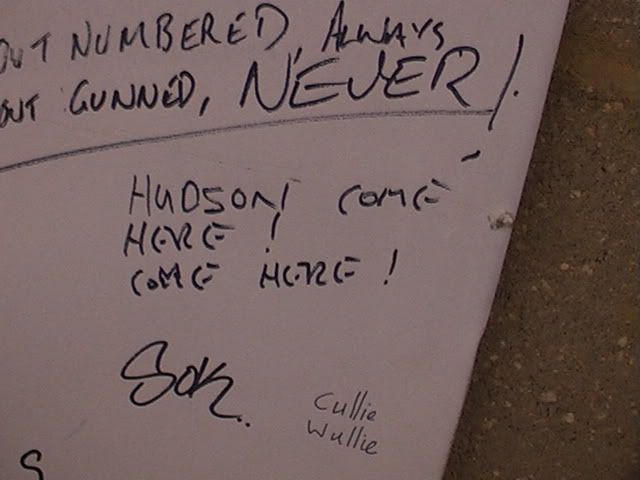 OUT NUMBERED, ALWAYS
OUT GUNNED, NEVER!
HUDSON COME
HERE!
COME HERE!
Sok
Cullie
Wullie
S